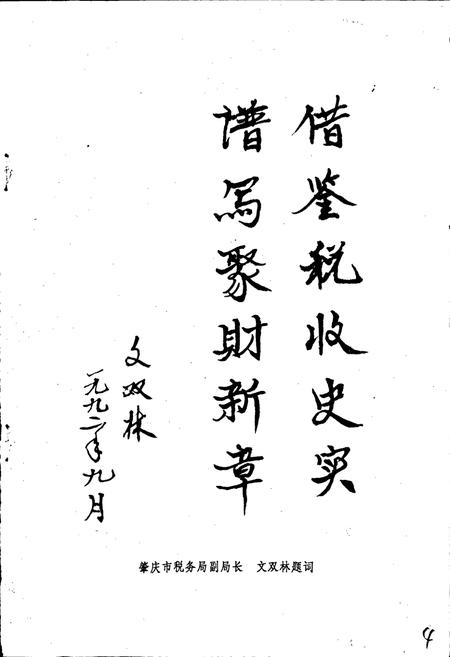 借鉴税收史实
谱写聚财新章
文双林
一九九二年九月
肇庆市税务局副局长 文双林题词
4